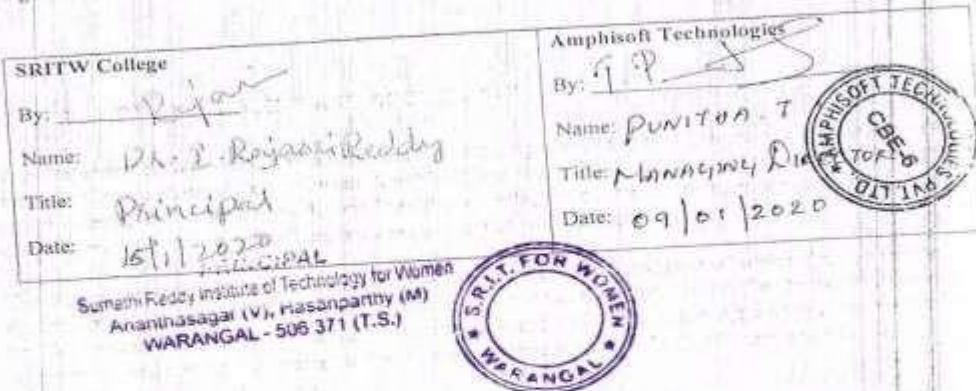 SRITW College
By: Rajani
Name: Dr. I. Rajasri Reddy
Title: Principal
Date: 15/1/2020
PRINCIPAL
Sumathi Reddy Institute of Technology for Women
Ananthasagar (V), Hasanparthy (M)
WARANGAL - 506 371 (T.S.)
S.R.I.T. FOR WOMEN
★ WARANGAL ★
Amphisoft Technologies
By: T.P
Name: PUNITHA. T
Title: MANAGING DIR
Date: 09/01/2020
AMPHISOFT TECHNOLOGIES PVT. LTD. ★
CBE-6